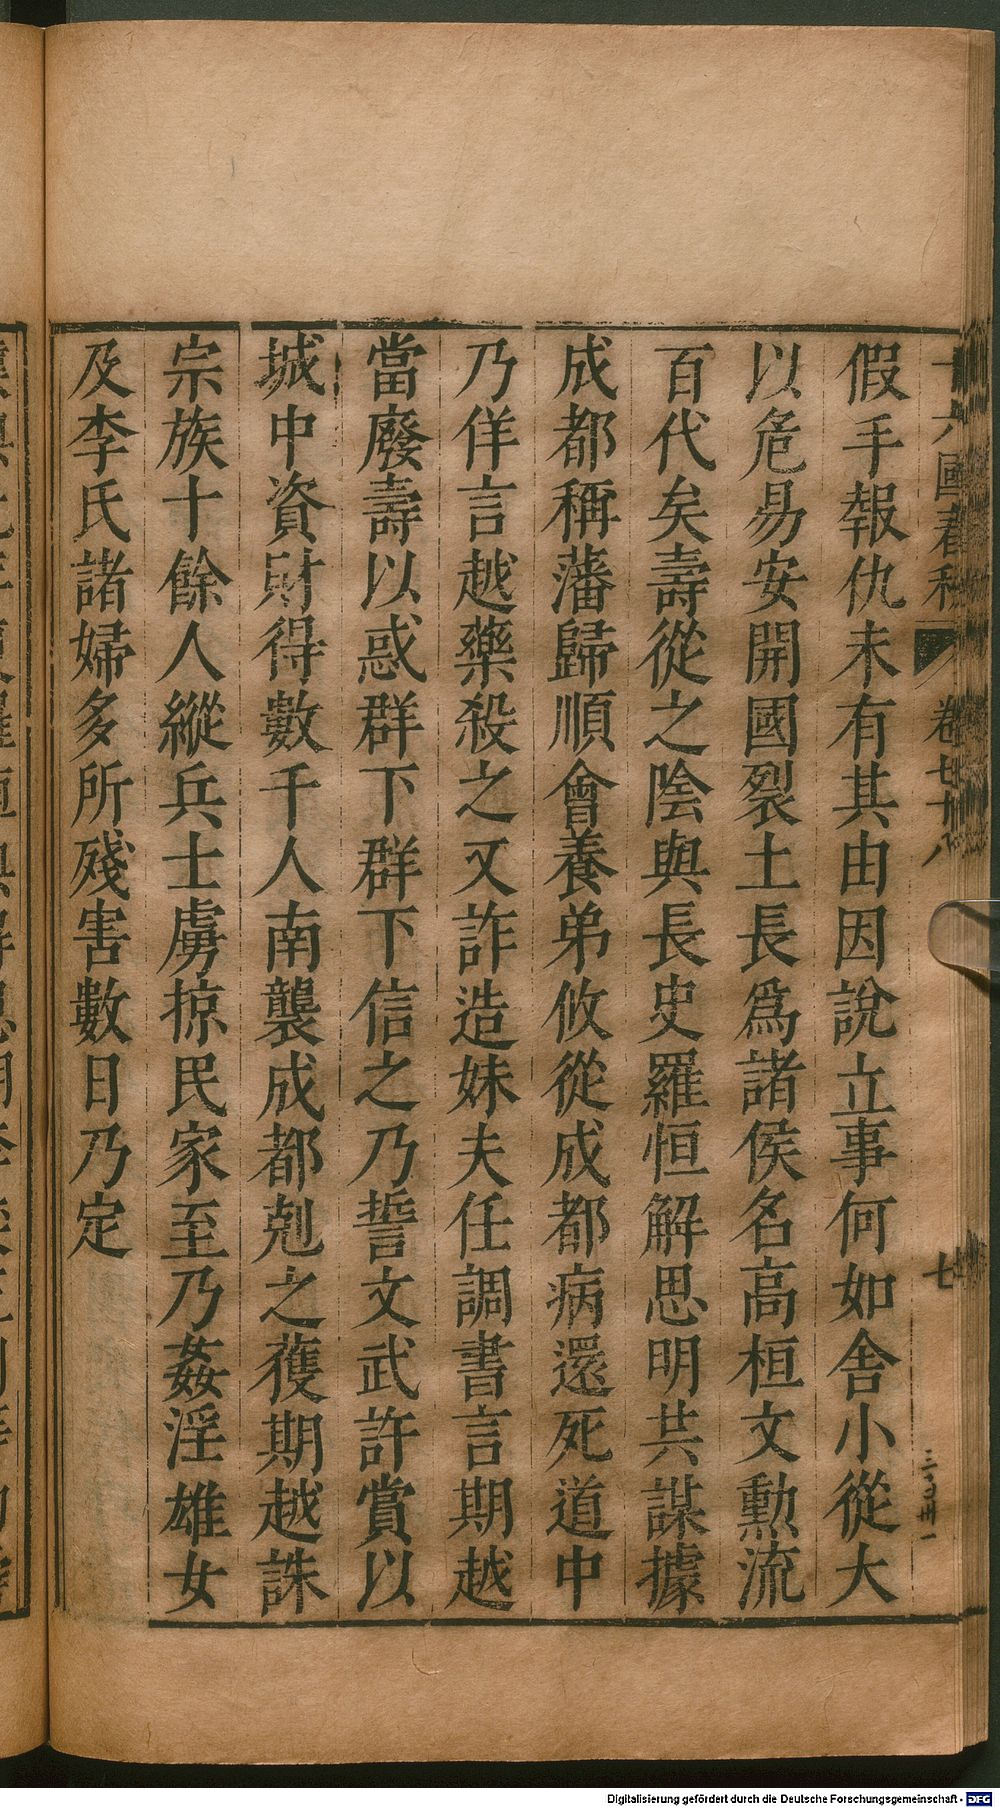 十六國春秋 卷七十八 七
假手報仇未有其由因說立事何如舍小從大
以危易安開國裂土長爲諸侯名高桓文勲流
百代矣壽從之陰與長史羅恒解思明共謀據
成都稱藩歸順會養弟攸從成都病還死道中
乃佯言越藥殺之又詐造妹夫任調書言期越
當廢壽以惑群下群下信之乃誓文武許賞以
城中資財得數千人南襲成都剋之獲期越誅
宗族十餘人縱兵士虜掠民家至乃姦淫雄女
及李氏諸婦多所殘害數日乃定
Digitalisierung gefördert durch die Deutsche Forschungsgemeinschaft - DFG